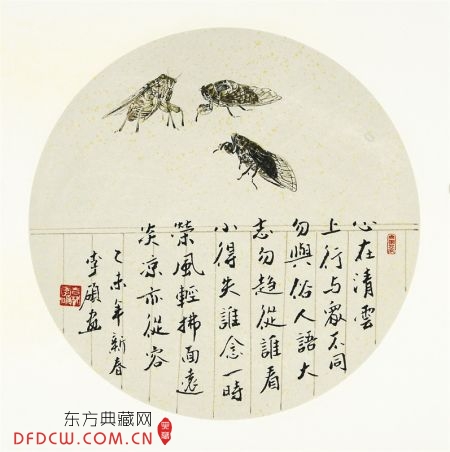 心在清雲
上行与眾不同
勿與俗人語大
志勿趋從誰看
小得失誰念一時
榮風輕拂面遠
炎凉亦從容
乙未年新春
李碩画
东方典藏网
DFDCW.COM.CN